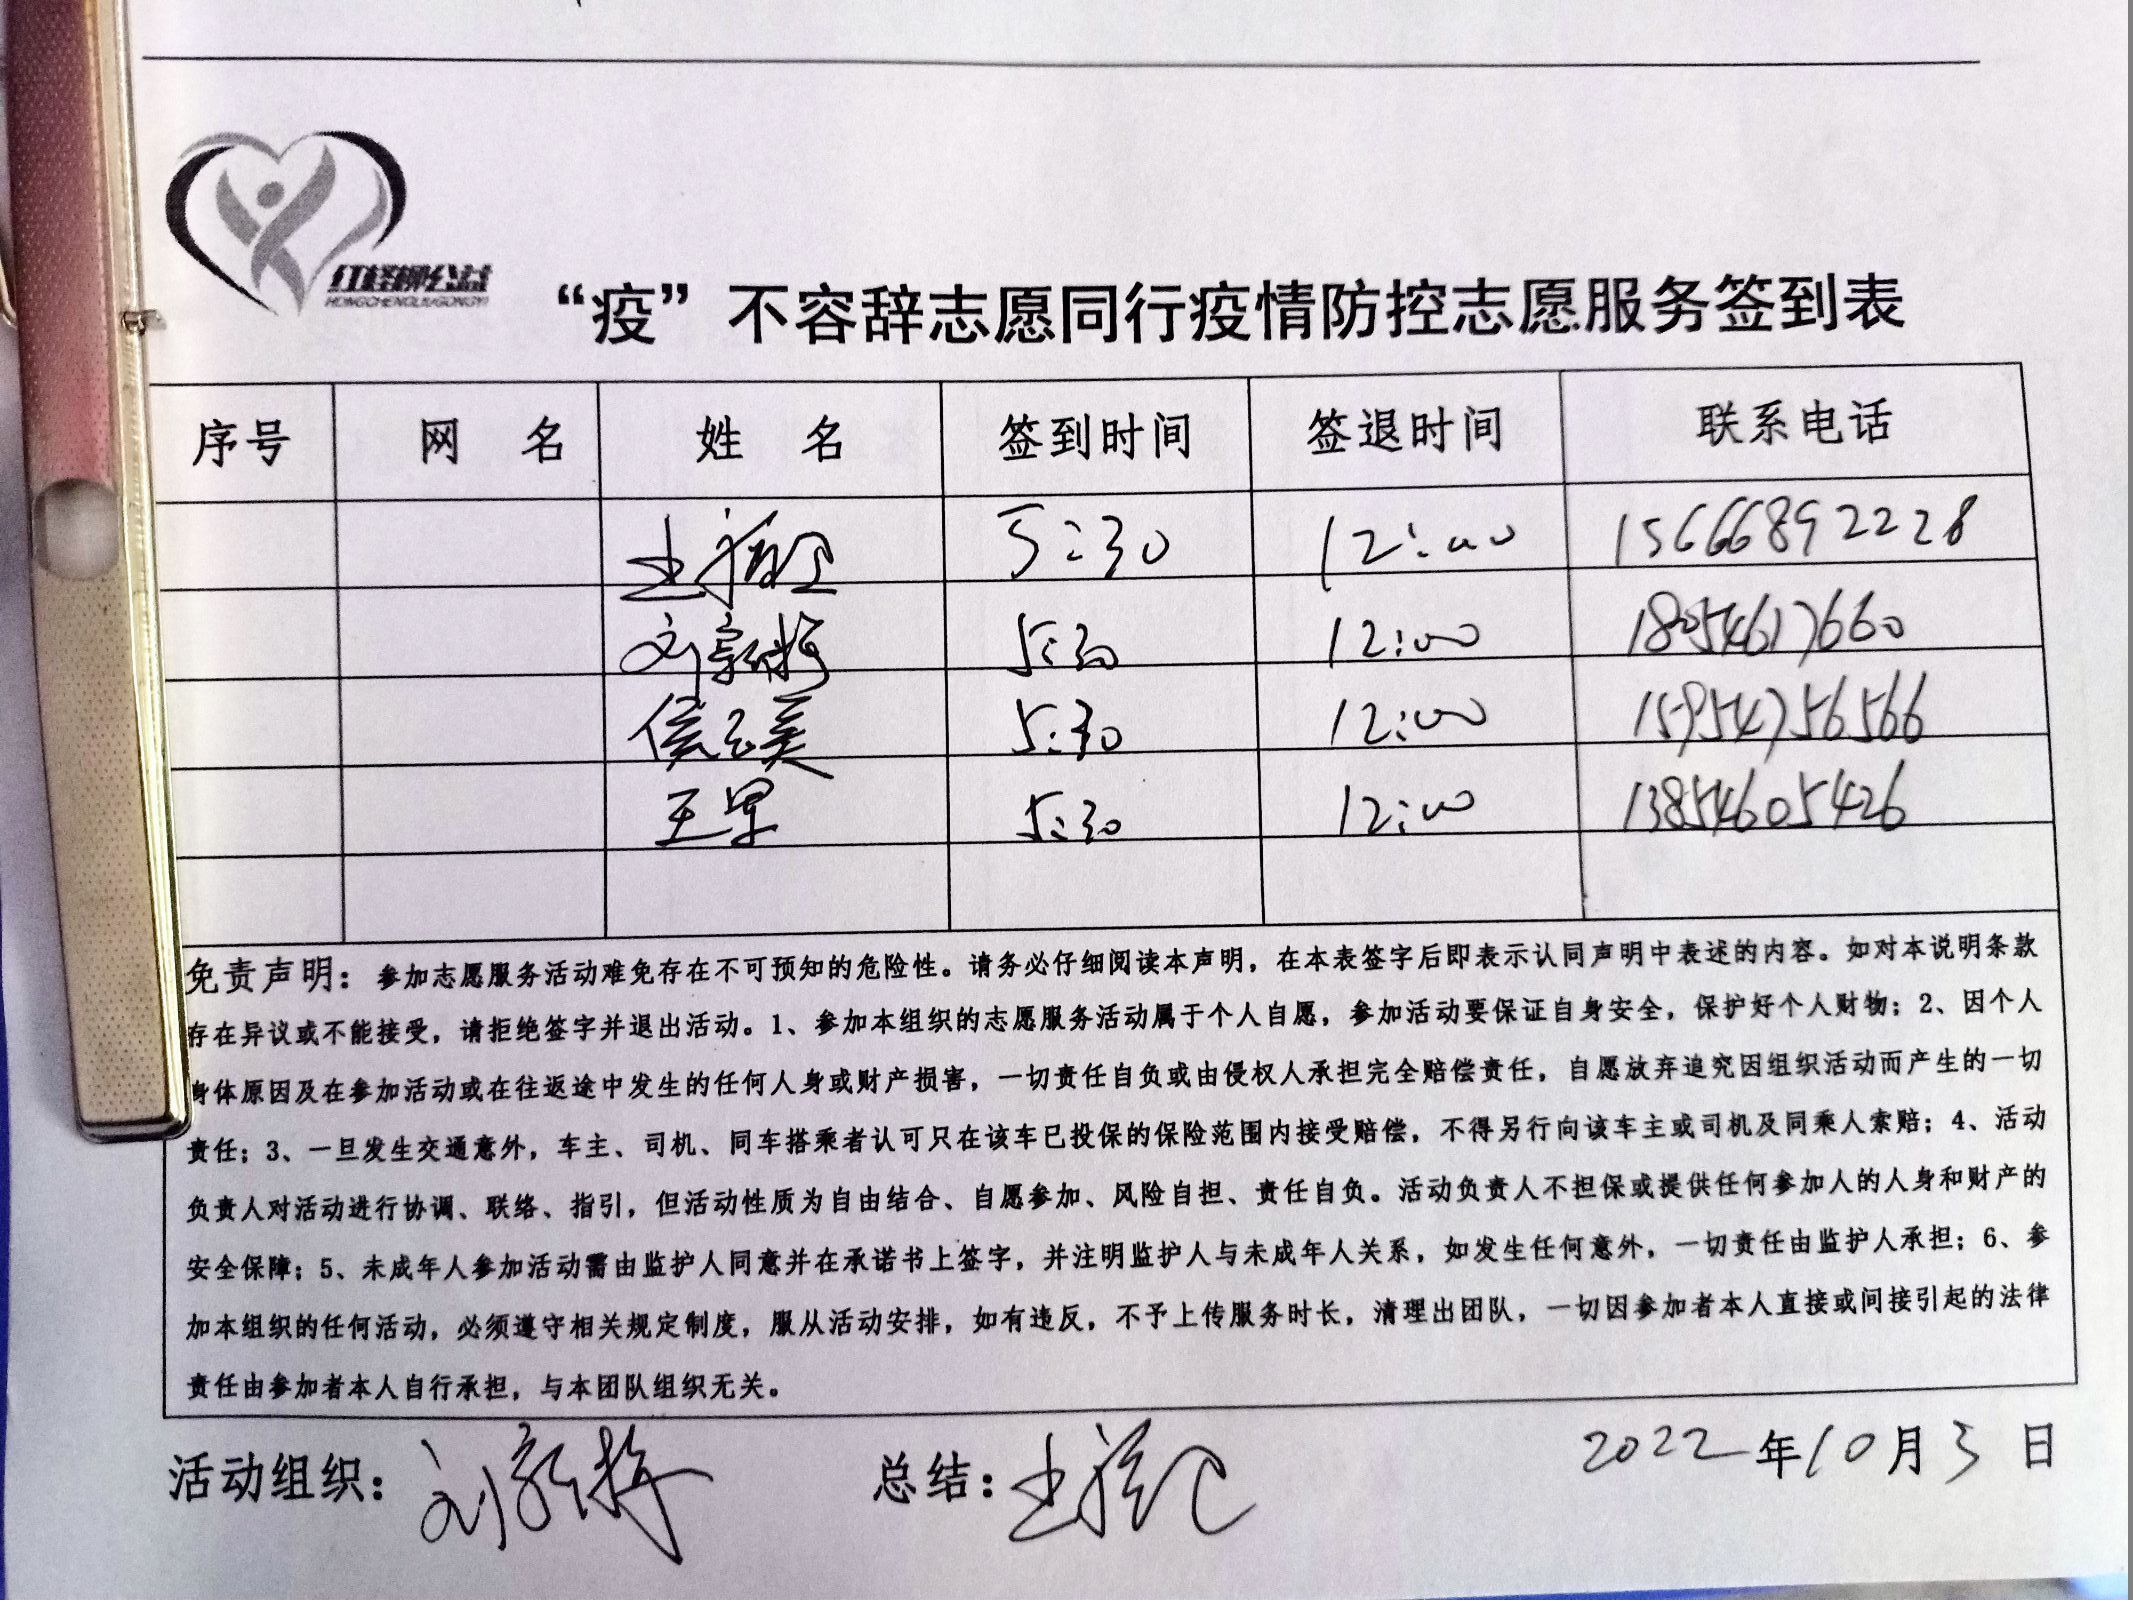 红柽柳公益
HONGCHENGLIUGONGYI
“疫”不容辞志愿同行疫情防控志愿服务签到表
序号 网 名 姓 名 签到时间 签退时间 联系电话
5:30 12:00 15666892228
刘新梅 5:30 12:00 18054617660
侯云美 5:30 12:00 15954756566
王军 5:30 12:00 13854605426
免责声明：参加志愿服务活动难免存在不可预知的危险性。请务必仔细阅读本声明，在本表签字后即表示认同声明中表述的内容。如对本说明条款
存在异议或不能接受，请拒绝签字并退出活动。1、参加本组织的志愿服务活动属于个人自愿，参加活动要保证自身安全，保护好个人财物；2、因个人
身体原因及在参加活动或在往返途中发生的任何人身或财产损害，一切责任自负或由侵权人承担完全赔偿责任，自愿放弃追究因组织活动而产生的一切
责任；3、一旦发生交通意外，车主、司机、同车搭乘者认可只在该车已投保的保险范围内接受赔偿，不得另行向该车主或司机及同乘人索赔；4、活动
负责人对活动进行协调、联络、指引，但活动性质为自由结合、自愿参加、风险自担、责任自负。活动负责人不担保或提供任何参加人的人身和财产的
安全保障；5、未成年人参加活动需由监护人同意并在承诺书上签字，并注明监护人与未成年人关系，如发生任何意外，一切责任由监护人承担；6、参
加本组织的任何活动，必须遵守相关规定制度，服从活动安排，如有违反，不予上传服务时长，清理出团队，一切因参加者本人直接或间接引起的法律
责任由参加者本人自行承担，与本团队组织无关。
活动组织：刘新梅 总结： 2022年10月3日